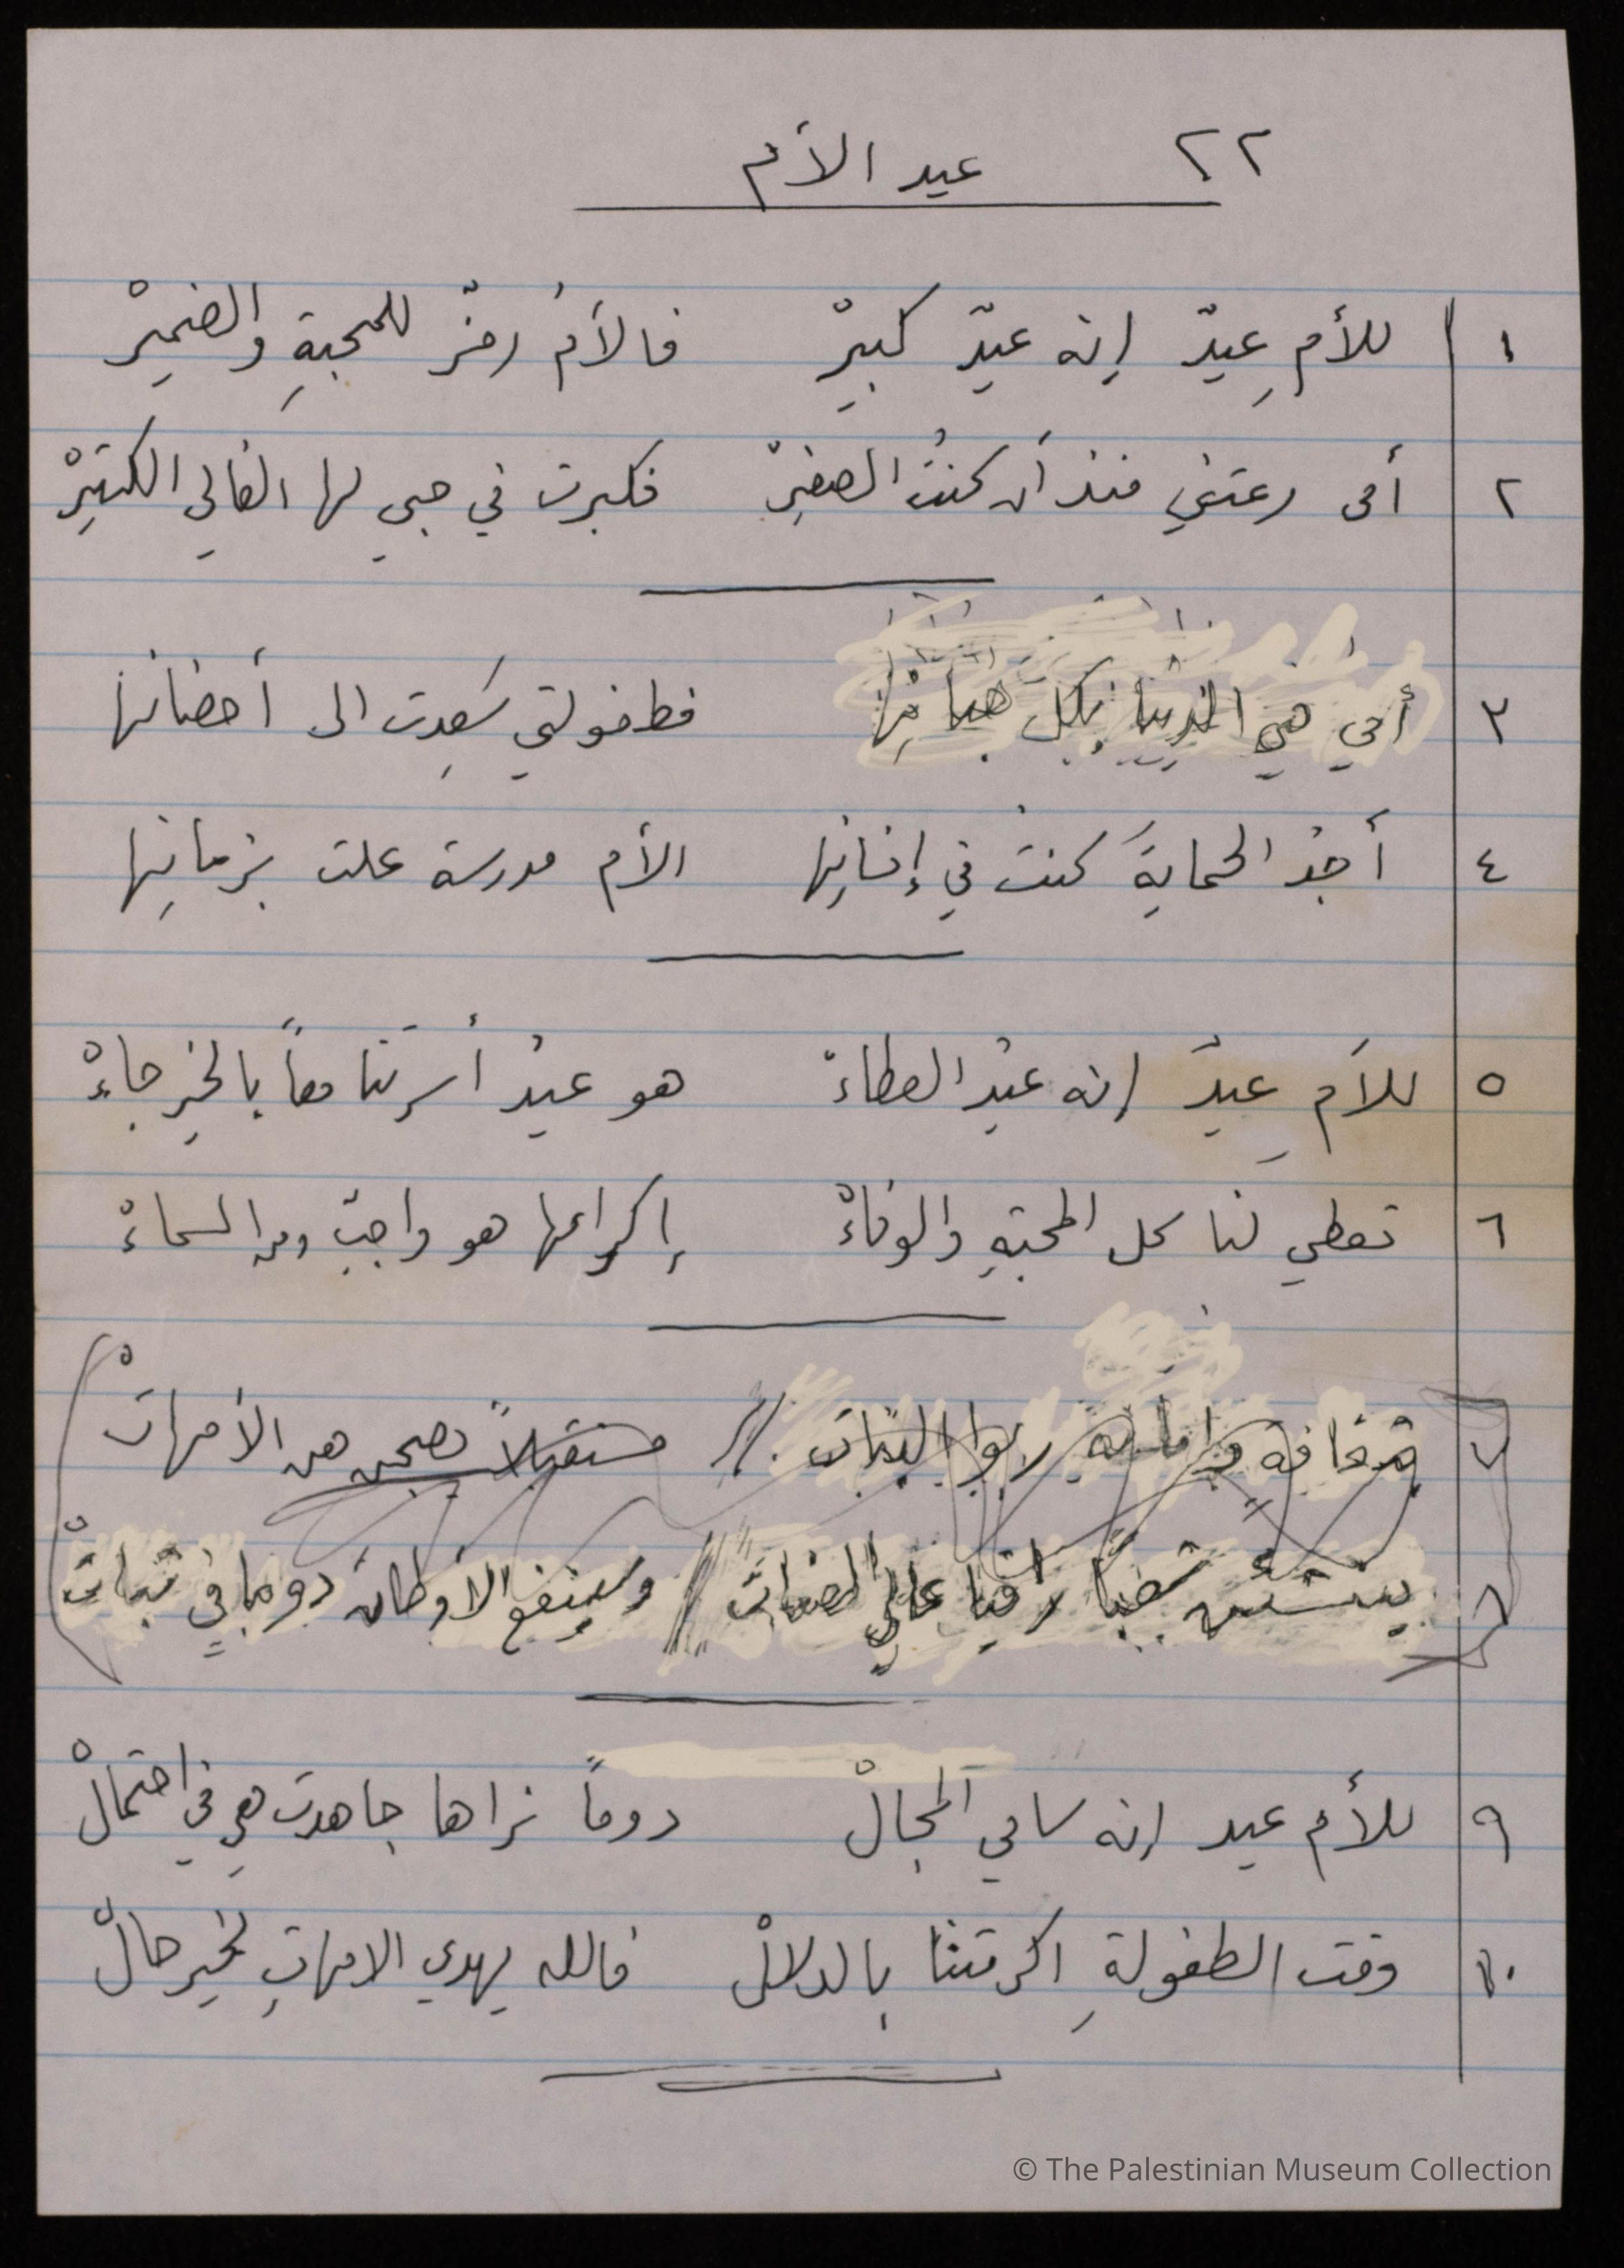 ٢٢ عيد الأم
١ للأمِ عيدٌ إنه عيدٌ كبيرْ فالأمُ رمزٌ للمحبةِ والضميرْ
٢ أمي رعتني منذ أن كنتُ الصغيرْ فكبرت في حبي لها الغالي الكثيرْ
٣ أمي هي الدنيا بكل هباتِها فطفولتي سَعِدت الى أحضانها
٤ أجدُ الحمايةَ كنتُ في إنسانِها الأم مدرسة علت بزمانِها
٥ للأمِ عيدٌ إنه عيدُ العطاءْ هو عيدُ أسرتنا معاً بالخير جاءْ
٦ تعطي لنا كل المحبةِ والوفاءْ إكرامها هو واجبٌ ومن السماءْ
٧ ربوا البنات // مستقبلاً تصبحن هن الأمهاتْ
٨ شعباً راقيا عالي الصفات // وسينفع الأوطانَ دوما في ثباتْ
٩ للأم عيد إنه سامي المجالْ دوماً نراها جاهدت هي في احتمالْ
١٠ وقت الطفولةِ اكرمتنا بالدلالْ فالله يهدي الامهاتِ لخير حالْ
© The Palestinian Museum Collection